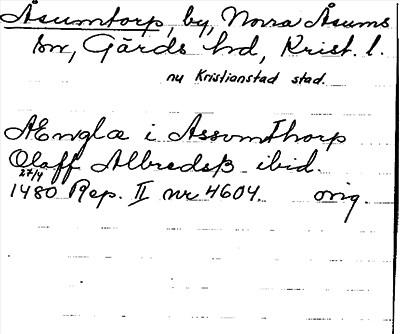 Åsumtorp, by, Norra Åsums
sn, Gärds hd, Krist. l.
nu Kristianstad stad.
AEnglæ i Assvmthorp
Olaff Albredsß ibid.
27/9
1480 Rep. II nr 4604. orig.